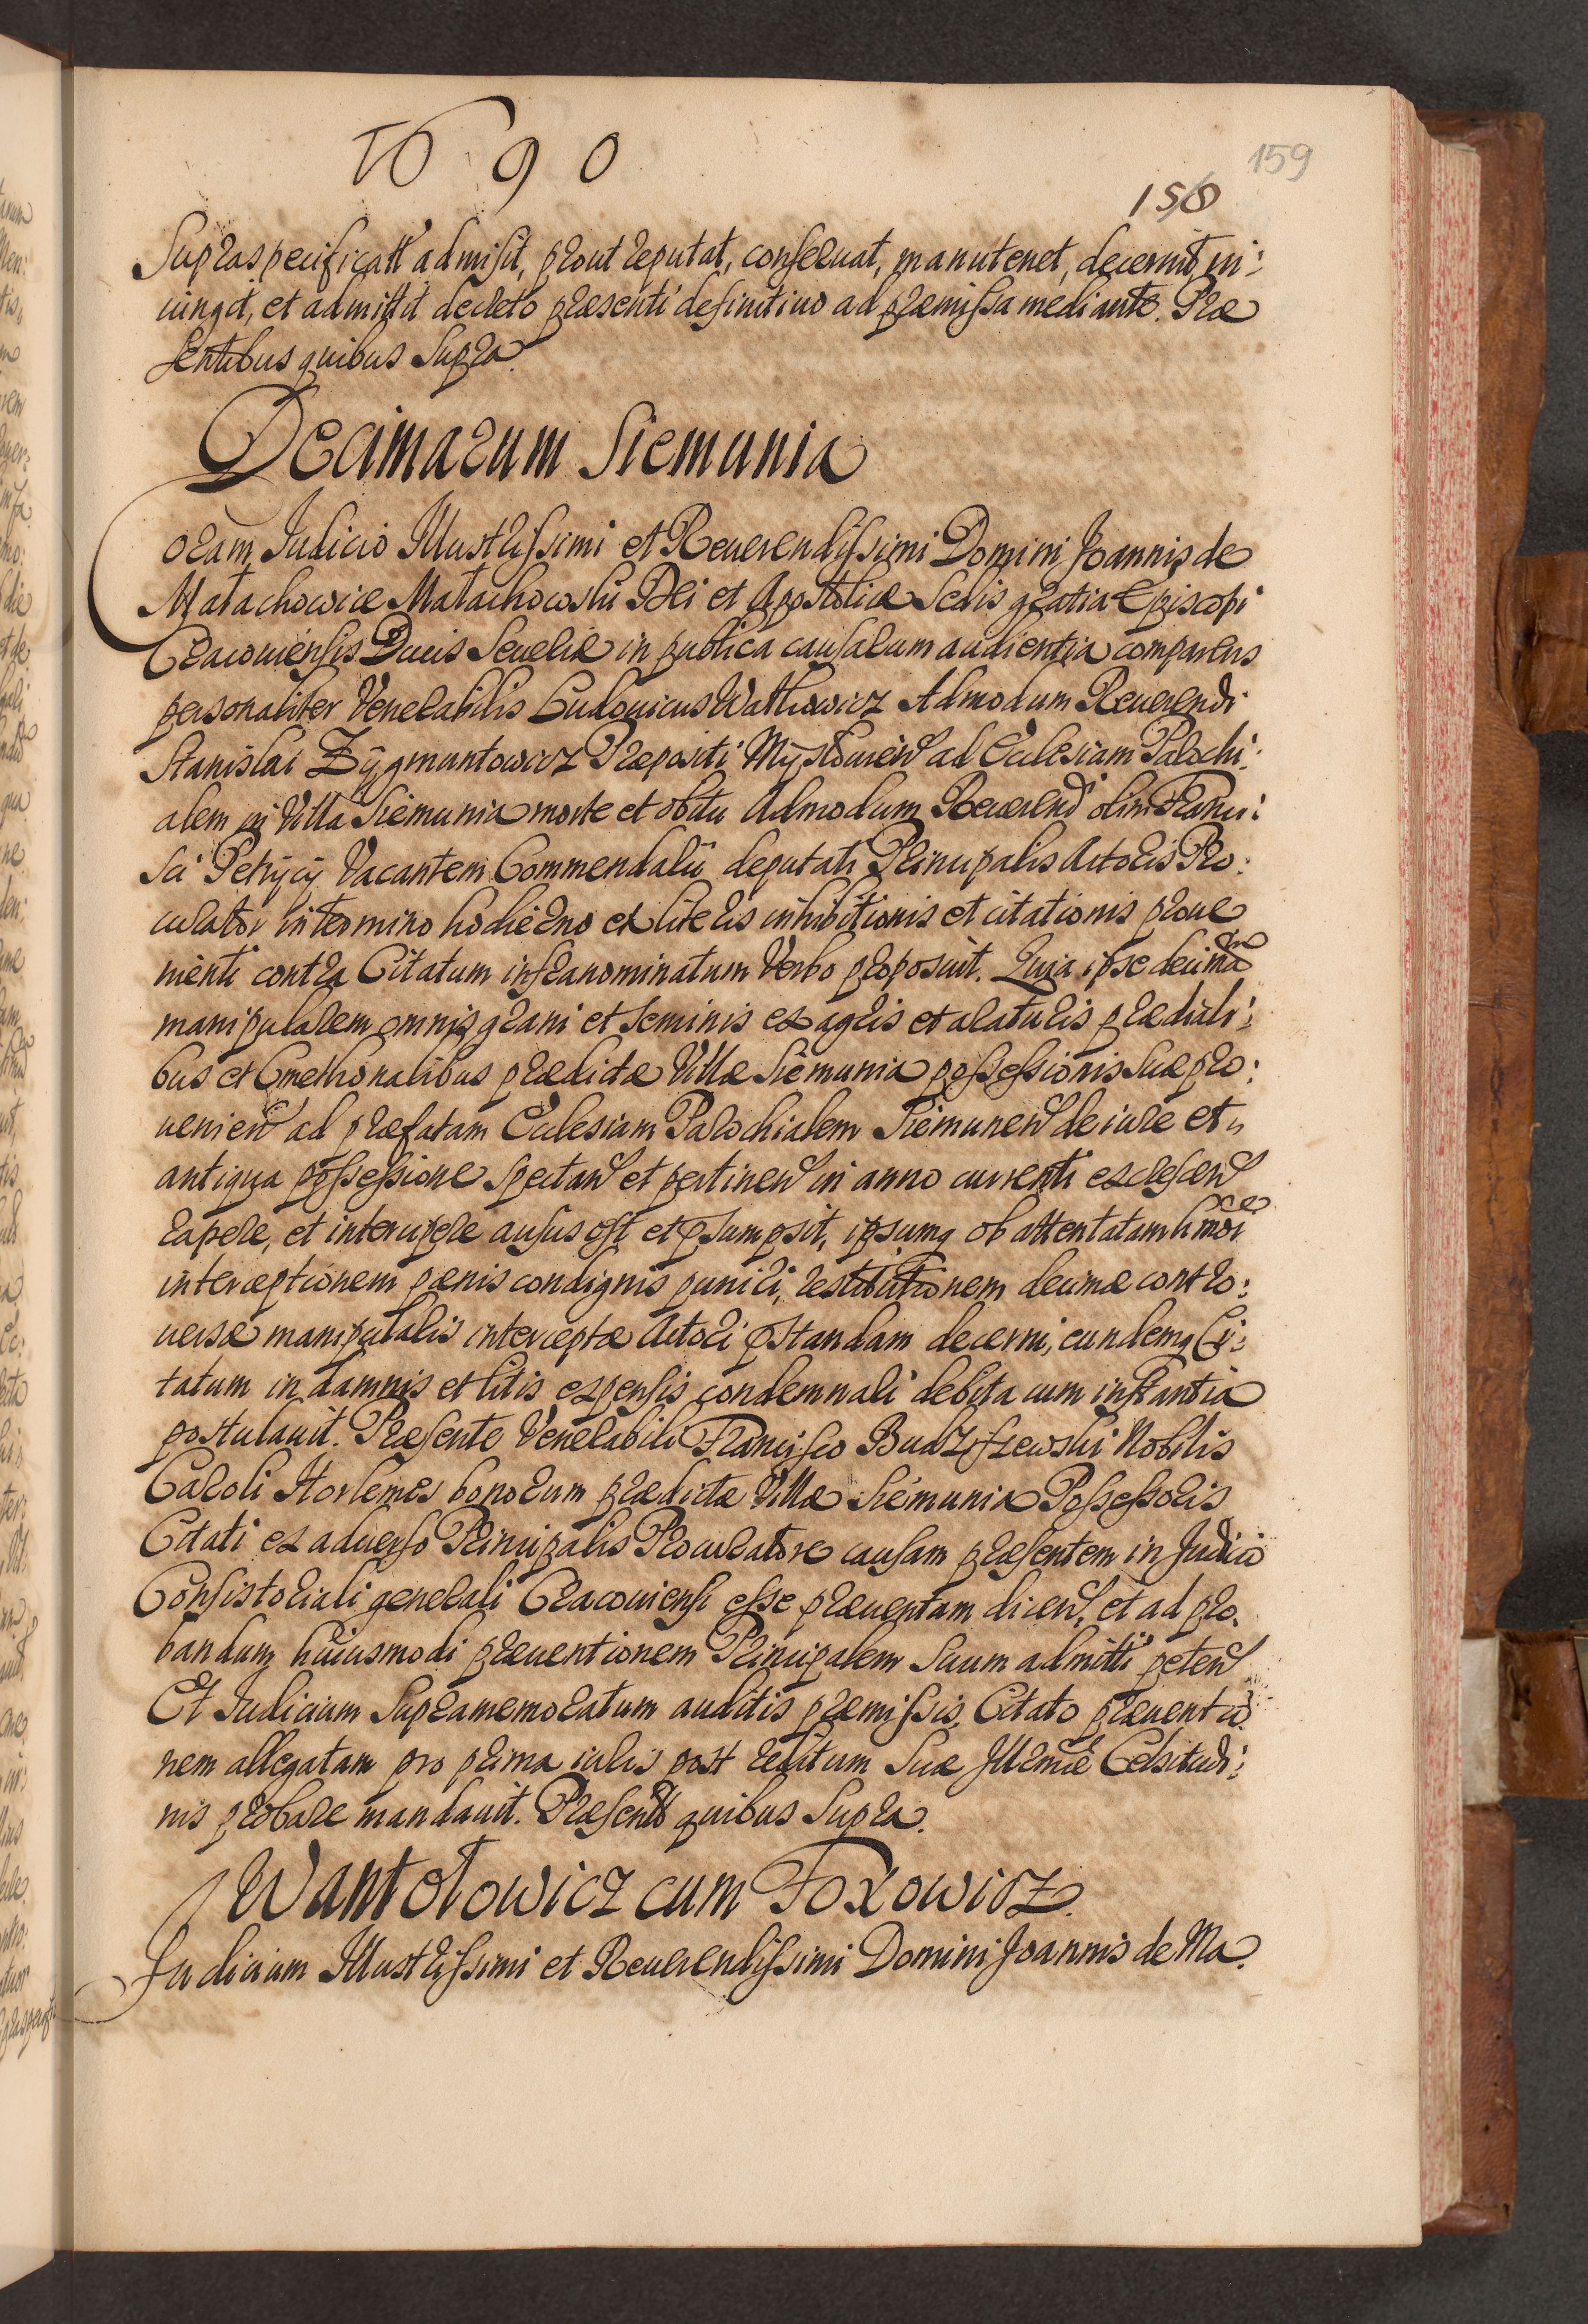 1690
159
158
Supraspecificatt admisit, prout reputat, conseruat, manutenet, decernit in:
iungit, et admittit decreto præsenti definitiuo ad præmissa mediante. Præ
sentibus quibus Supra.
Decimarum Siemunia
Coram Iudicio Illustrissimi et Reuerendissimi Domini Joannis de
Małachowice Małachowski Dei et Apostolicæ Sedis gratia Episcopi
Cracouiensis Ducis Seueriæ in publica causarum audientia comparens
personaliter Venerabilis Ludouicus Admodum Reuerendi
Stanislai Zygmuntowicz Præpositi Mysłouien ad Ecclesiam Parochi:
alem in Villa Siemunia morte et obitu Admodum Reuerend olim Franci:
sci Petrycy Vacantem Commendarii deputati Principalis Actoris Pro:
curator in termino hodierno ex literis inhibitionis et citationis proue
nienti contra Citatum infranominatum Verbo proposuit. Quia ipse decimã
manipularem omnis grani et seminis ex agris et araturis prædiali:
bus et Cmethonalibus prædictæ Villæ Siemunia possessionis suæ pro:
uenien ad præfatam Ecclesiam Parochialem Siemunen de iure et
antiqua possessione spectan et pertinen in anno currenti excrescen
rapere, et intercipere ausus est et psumpsit, ipsumq ob attentatam hmõi
interceptionem pœnis condignis puniri, restitutionem decimæ contro:
uersæ manipularis interceptæ Actori pstandam decerni, eundemq Ci:
tatum in damnis et litis expensis condemnari debita cum instantia
postulauit. Præsente Venerabili Francisco Budziszewski Nobilis
Caroli bonorum prædictæ Villæ Siemunia Possessoris
Citati ex aduerso Principalis Procuratore causam præsentem in Judicio
Consistoriali generali Cracouiensi esse præuentam dicen, et ad pro:
bandum huiusmodi præuentionem Principalem Suum admitti peten
Et Iudicium Supramemoratum auditis præmissis, Citato præuentio
nem allegatam pro prima iuris post reditum Suæ Illmæ Celsitudi:
nis probare mandauit. Præsentt quibus Supra.
Wantołowicz cum Foxowicz.
Judicium Illustrissimi et Reuerendissimi Domini Joannis de Ma